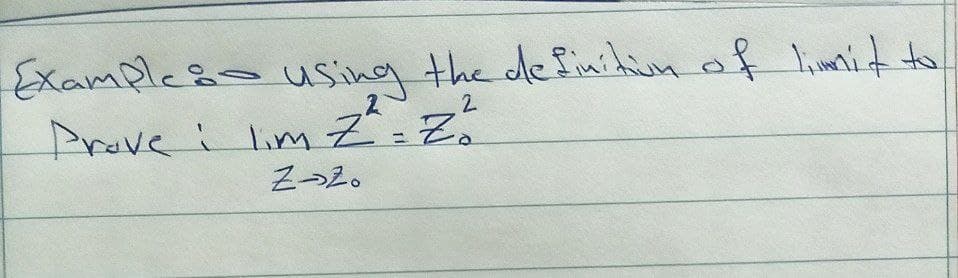 Example:- using the definition of limit to
Prove : lim Z² = Z₀²
Z→Z₀